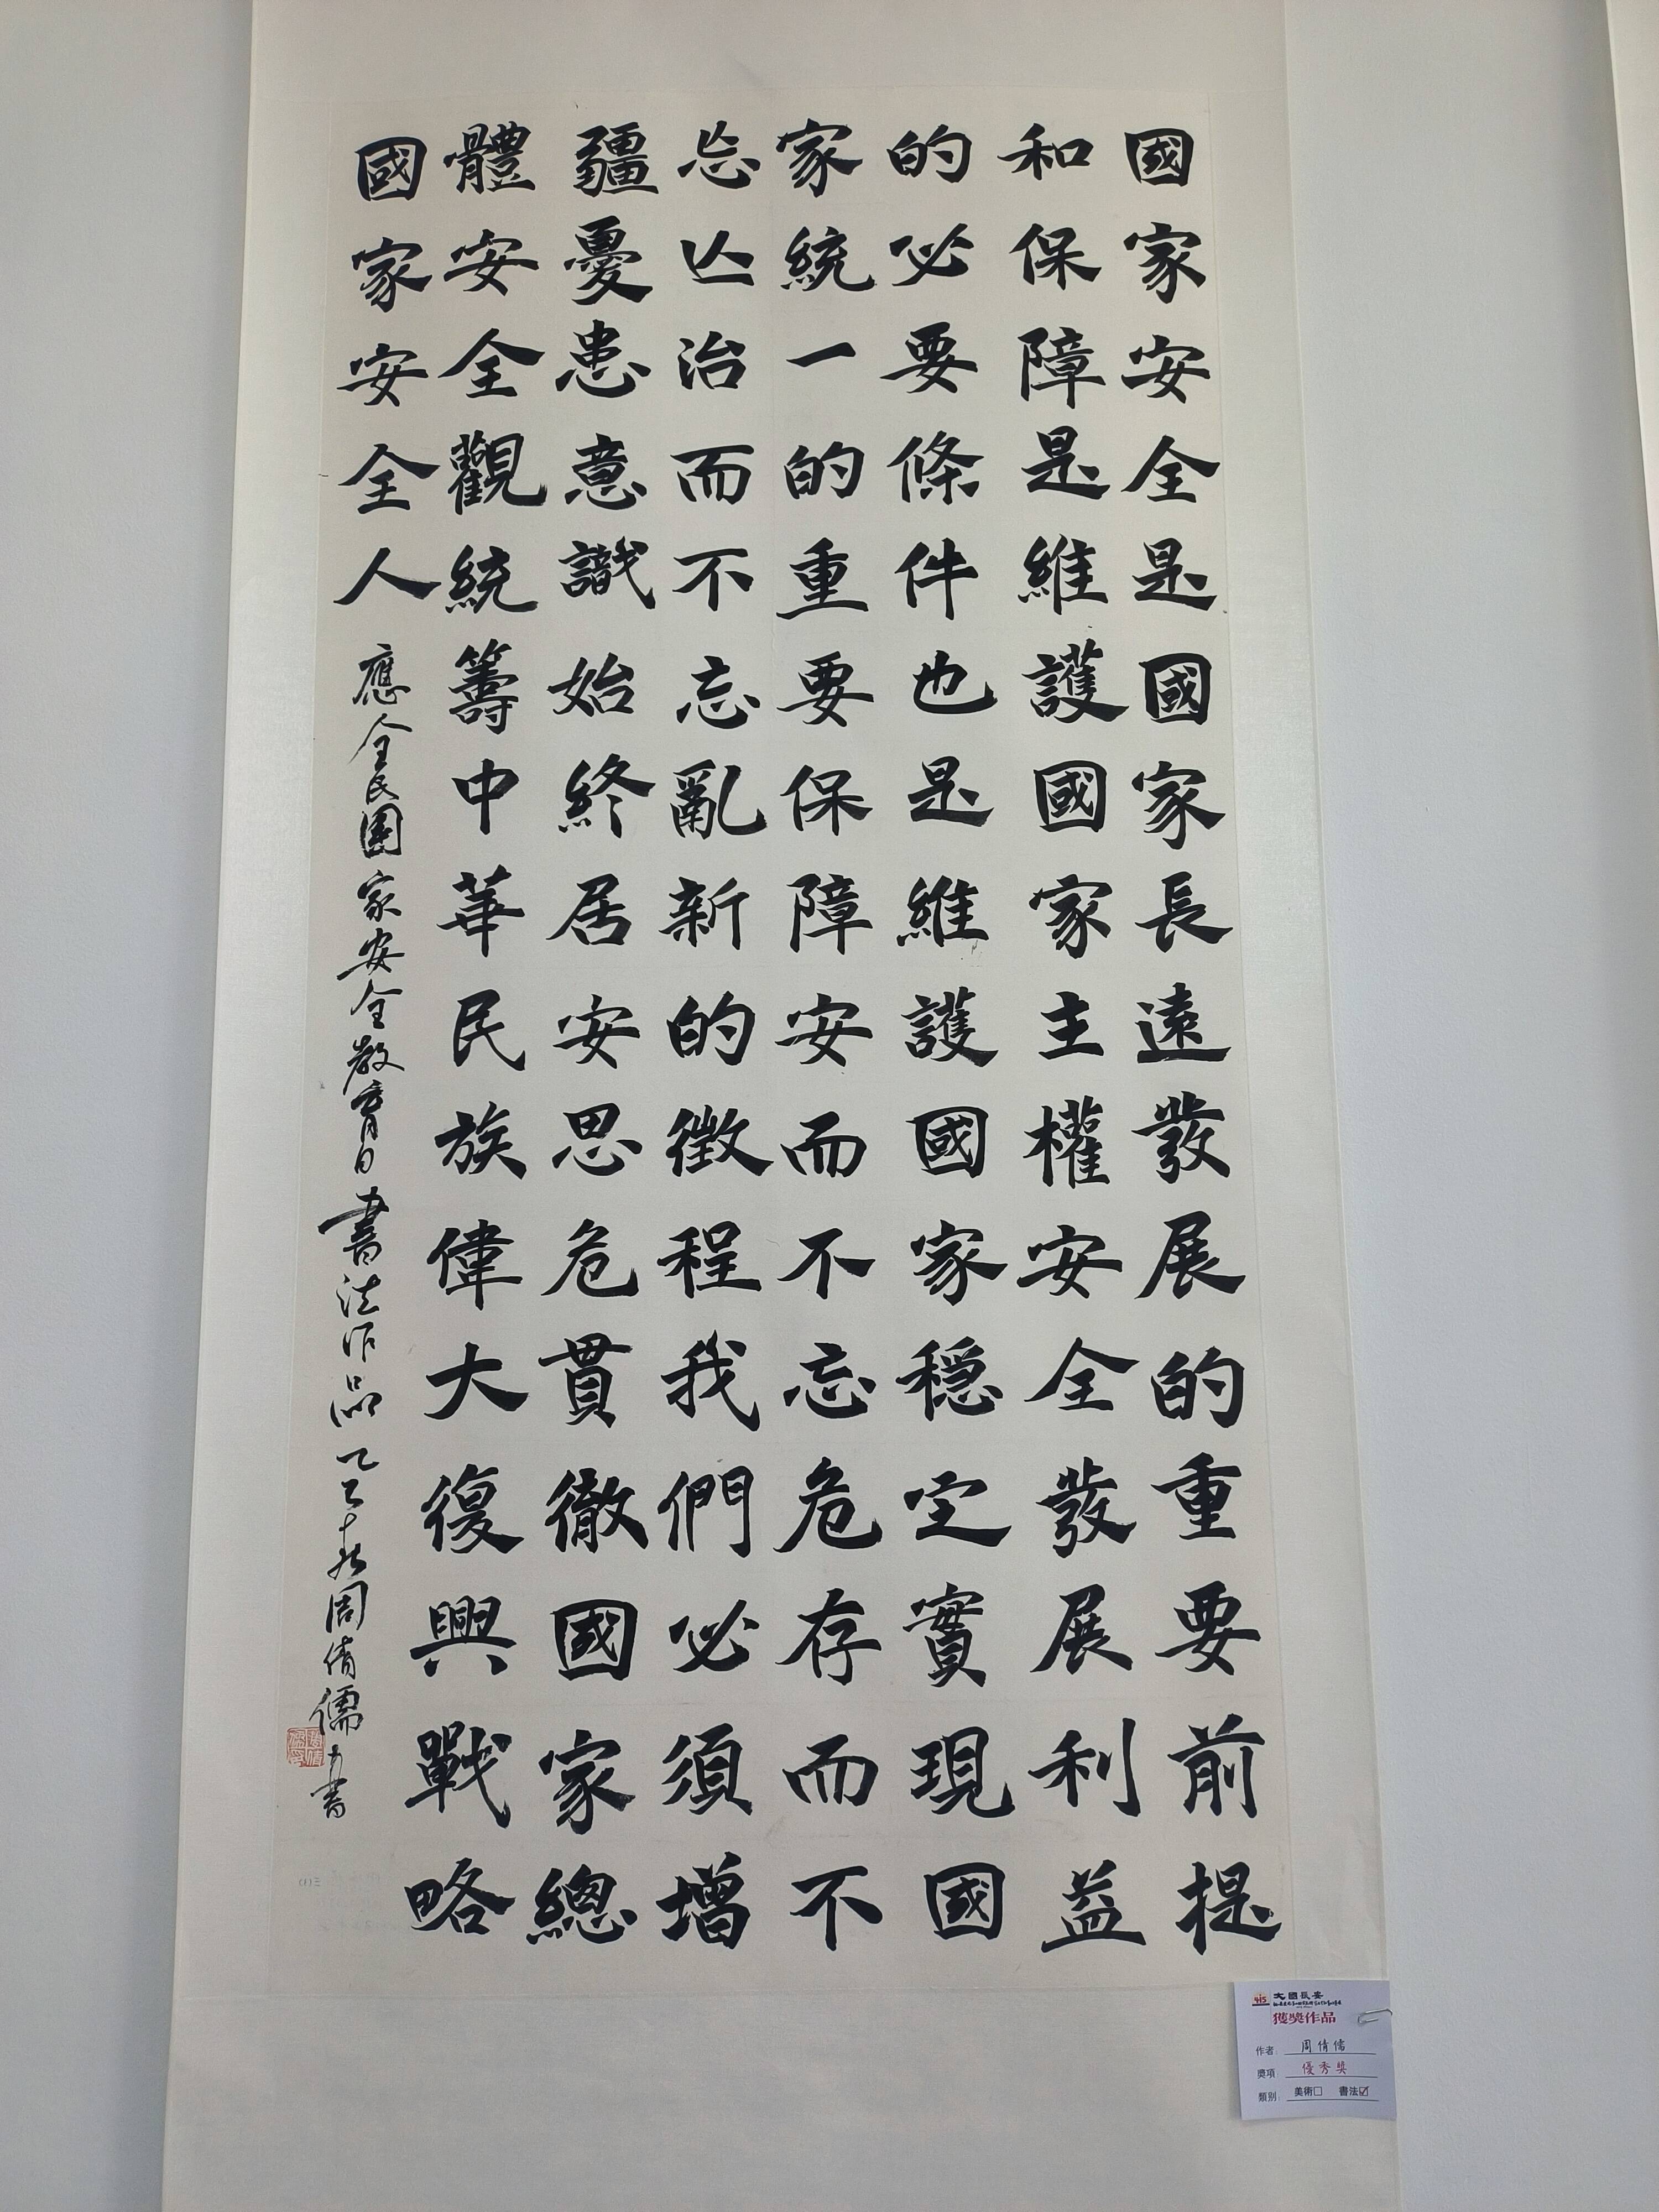 國家安全是國家長遠發展的重要前提
和保障是維護國家主權安全發展利益
的必要條件也是維護國家穩定實現國
家統一的重要保障安而不忘危存而不
忘亾治而不忘亂新的徵程我們必須增
疆憂患意識始終居安思危貫徹國家總
體安全觀統籌中華民族偉大復興戰略
國家安全人 應全民國家安全教育日書法作品乙巳 周倩儒書
415 大國長安
獲獎作品
作者: 周倩儒
獎項: 優秀獎
類別: 美術□ 書法☑